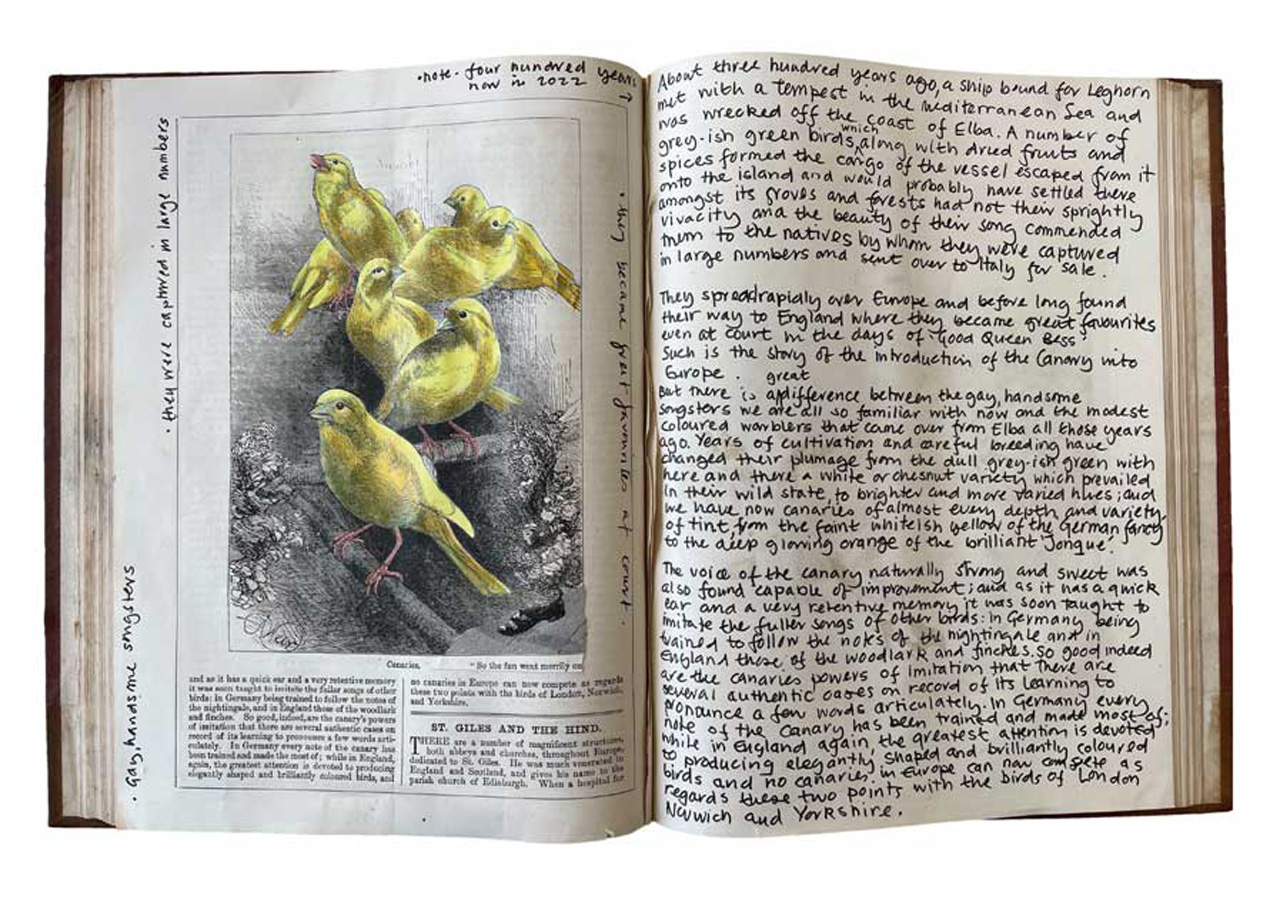 ·note· four hundred years
now in 2022 ↑
· they were captured in large numbers
· gay, handsome songsters
· they became great favourites at court ·
Canaries.
"So the fun went merrily on
and as it has a quick ear and a very retentive memory
it was soon taught to imitate the fuller songs of other
birds: in Germany being trained to follow the notes of
the nightingale, and in England those of the woodlark
and finches. So good, indeed, are the canary's powers
of imitation that there are several authentic cases on
record of its learning to pronounce a few words arti-
culately. In Germany every note of the canary has
been trained and made the most of; while in England,
again, the greatest attention is devoted to producing
elegantly shaped and brilliantly coloured birds, and
no canaries in Europe can now compete as regards
these two points with the birds of London, Norwich,
and Yorkshire.
ST. GILES AND THE HIND.
THERE are a number of magnificent structures,
both abbeys and churches, throughout Europe,
dedicated to St. Giles. He was much venerated in
England and Scotland, and gives his name to the
parish church of Edinburgh. When a hospital for
About three hundred years ago, a ship bound for Leghorn
met with a tempest in the Mediterranean Sea and
was wrecked off the coast of Elba. A number of
grey-ish green birds which along with dried fruits and
spices formed the cargo of the vessel escaped from it
onto the island and would probably have settled there
amongst its groves and forests had not their sprightly
vivacity and the beauty of their song commended
them to the natives by whom they were captured
in large numbers and sent over to Italy for sale.
They spread rapidly over Europe and before long found
their way to England where they became great favourites
even at court in the days of 'Good Queen Bess'
Such is the story of the introduction of the Canary into
Europe.
But there is a great difference between the gay, handsome
songsters we are all so familiar with now and the modest
coloured warblers that came over from Elba all those years
ago. Years of cultivation and careful breeding have
changed their plumage from the dull grey-ish green with
here and there a white or chesnut variety which prevailed
in their wild state, to brighter and more varied hues; and
we have now canaries of almost every depth and variety
of tint, from the faint whiteish yellow of the German fancy
to the deep glowing orange of the brilliant 'Jonque'.
The voice of the canary naturally strong and sweet was
also found capable of improvement; and as it has a quick
ear and a very retentive memory it was soon taught to
imitate the fuller songs of other birds: in Germany being
trained to follow the notes of the nightingale and in
England those of the woodlark and finches. So good indeed
are the canaries powers of imitation that there are
several authentic cases on record of its learning to
pronounce a few words articulately. In Germany every
note of the canary has been trained and made most of;
while in England again, the greatest attention is devoted
to producing elegantly shaped and brilliantly coloured
birds and no canaries in Europe can now compete as
regards these two points with the birds of London
Norwich and Yorkshire.